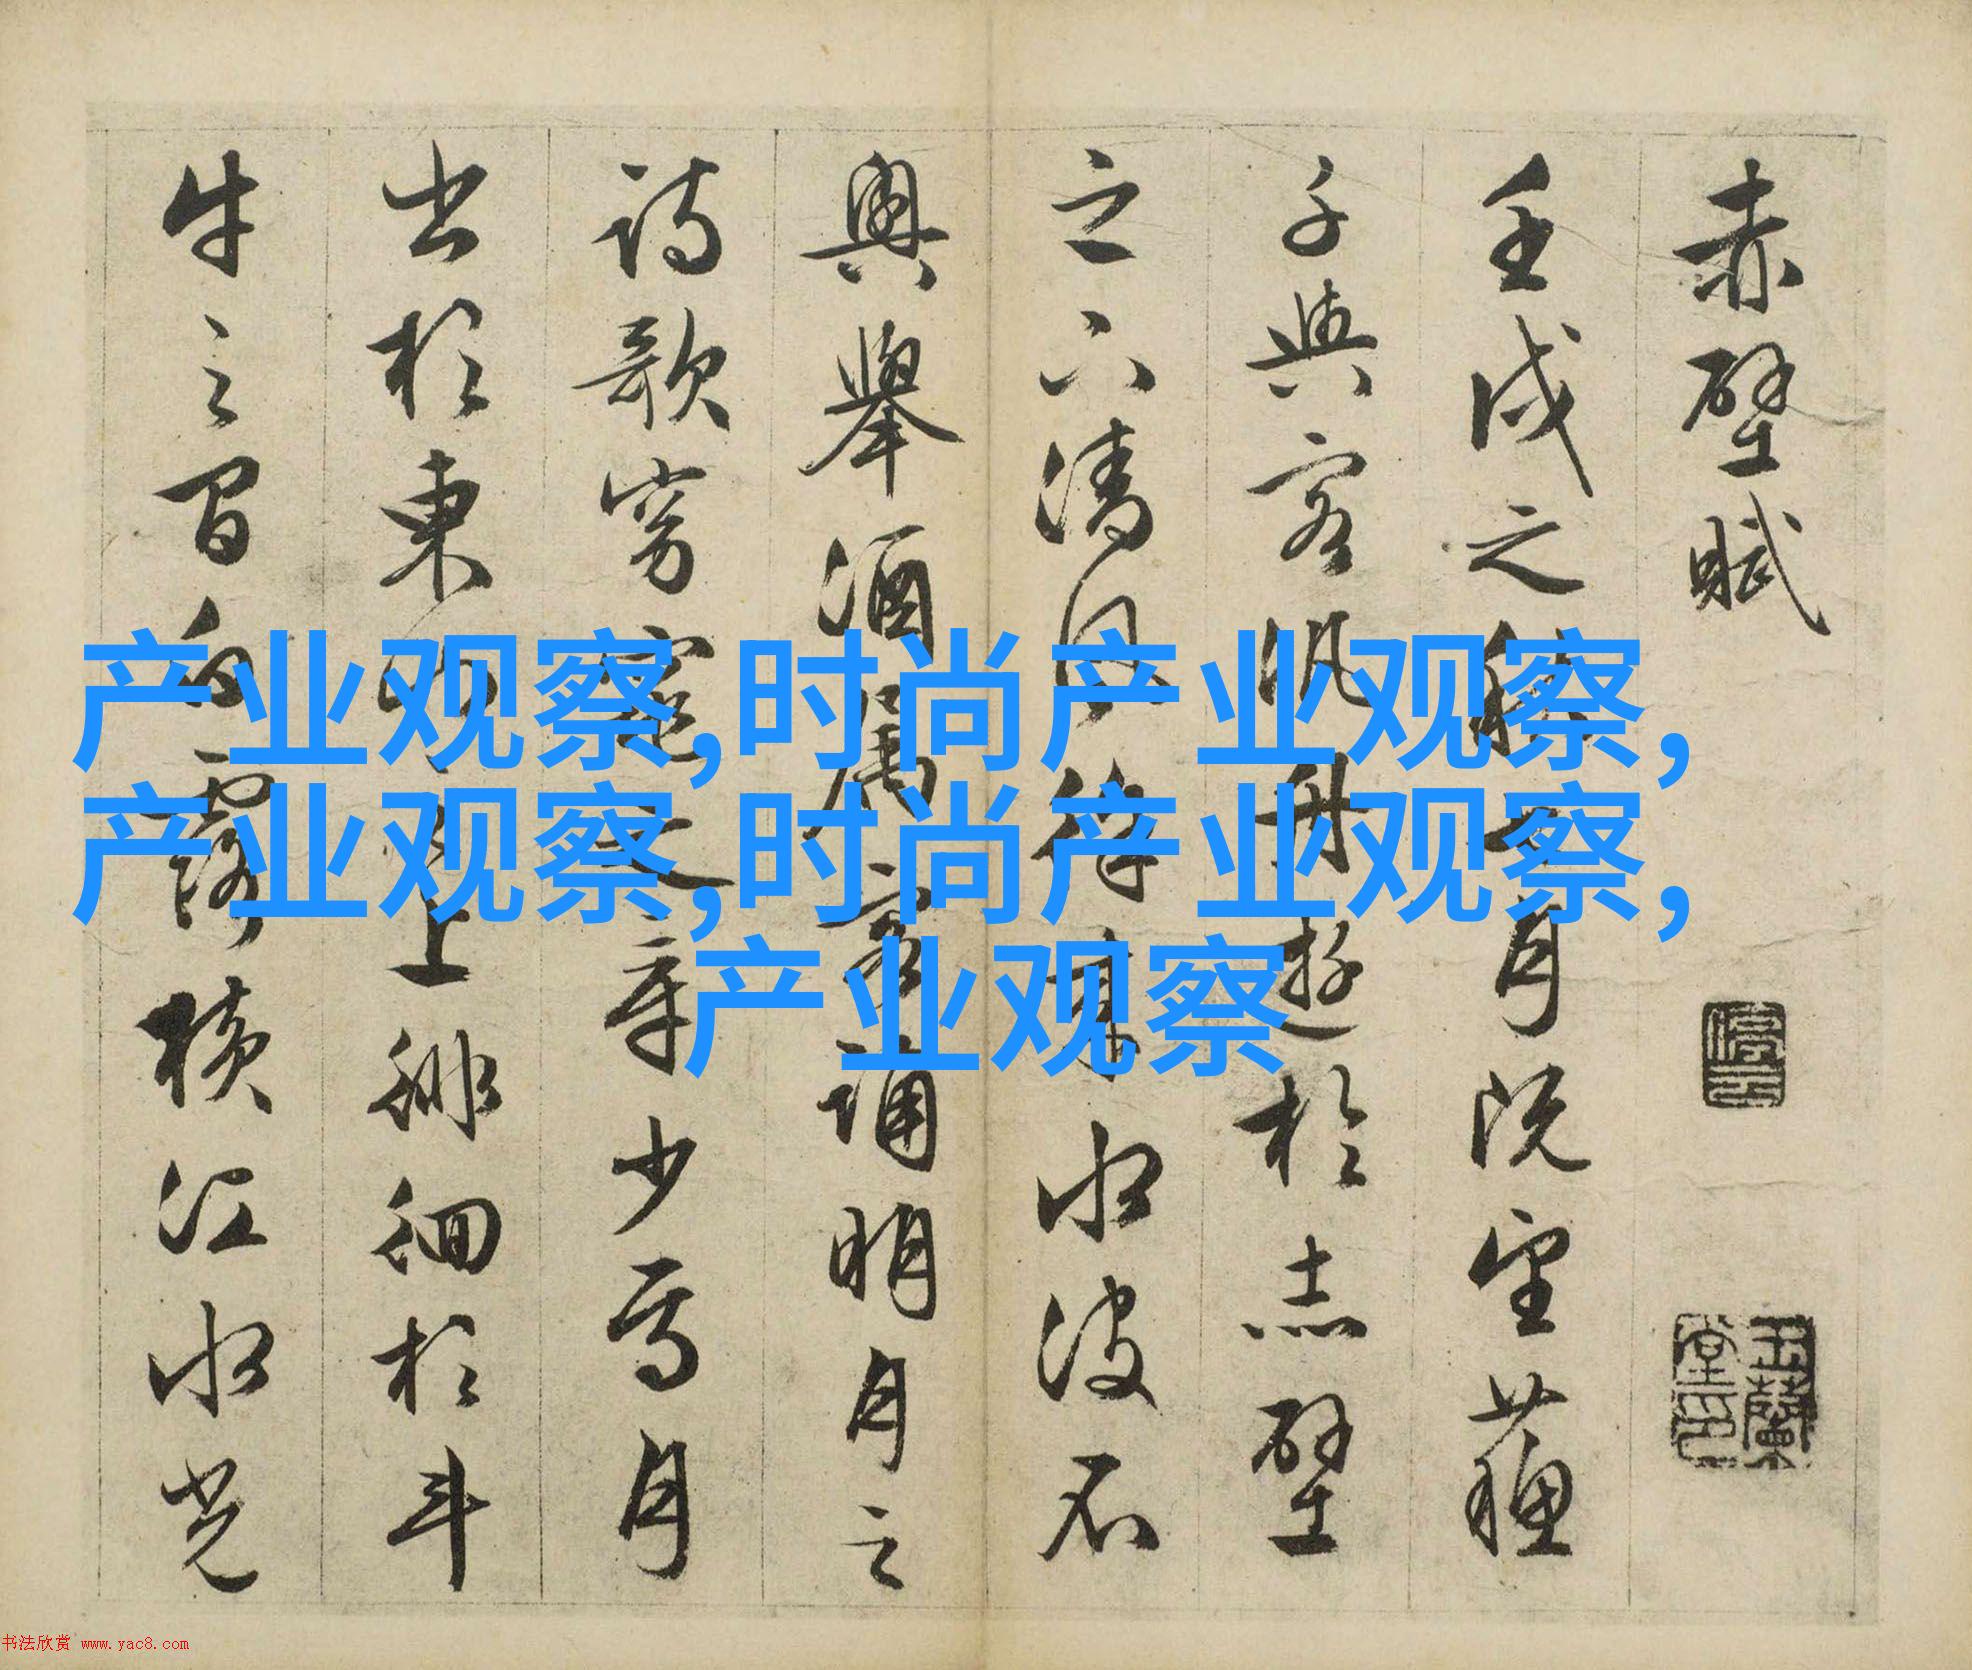 赤壁賦
壬戌之秋七月既望蘇
子與客汎舟遊於赤壁
之下清風徐來水波不
興舉酒屬客誦明月之
詩歌窈窕之章少焉月
出於東山之上徘徊於斗
牛之間白露橫江水光
停云
玉蘭堂印
产业观察,时尚产业观察,
产业观察,时尚产业观察,
产业观察
书法欣赏 www.yac8.com